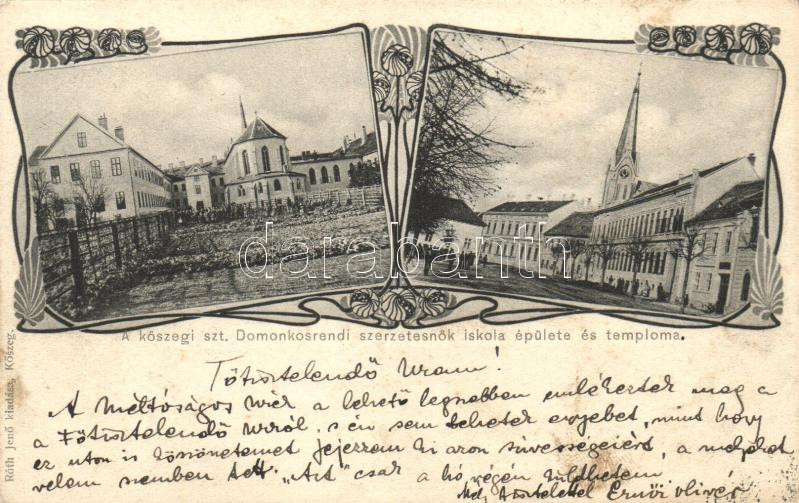 darabanth
A kőszegi szt. Domonkosrendi szerzetesnők iskola épülete és temploma.
Róth Jenő kiadása, Kőszeg.
Főtisztelendő Uram!
A Méltóságos a lehető legszebben emlékeztek meg a
Főtisztelendő úrról, s én sem tehetek egyebet, mint hogy
ez uton is köszönetemet fejezzem ki azon szivességeiért, a melyeket
velem szemben tett. csak a hó végén küldhetem
tisztelettel Emői Olivér